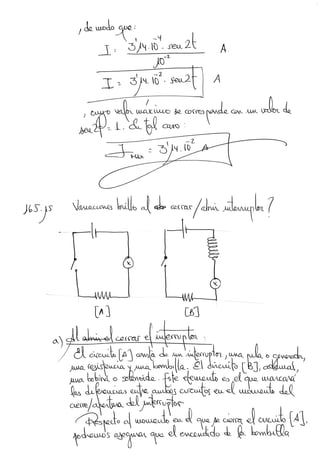 , de modo que:
I = 3'14·10⁻⁴ · sen 2t / 10⁻² A
I = 3'14·10⁻² · sen 2t A
, cuyo valor máximo se corresponde con un valor de
sen 2t = 1. En tal caso:
I máx = 3'14·10⁻² A
165.15 Variaciones brillo al cerrar/abrir interruptor?
[A] [B]
a) Al cerrar el interruptor:
El circuito [A] consta de un interruptor, una pila o generador,
una resistencia y una bombilla. El circuito [B], adicional,
una bobina o solenoide. Este elemento es el que marcará
las diferencias entre ambos circuitos en el momento del
cierre/apertura del interruptor.
Respecto al momento en el que se cierra el circuito [A],
podremos asegurar que el encendido de la bombilla